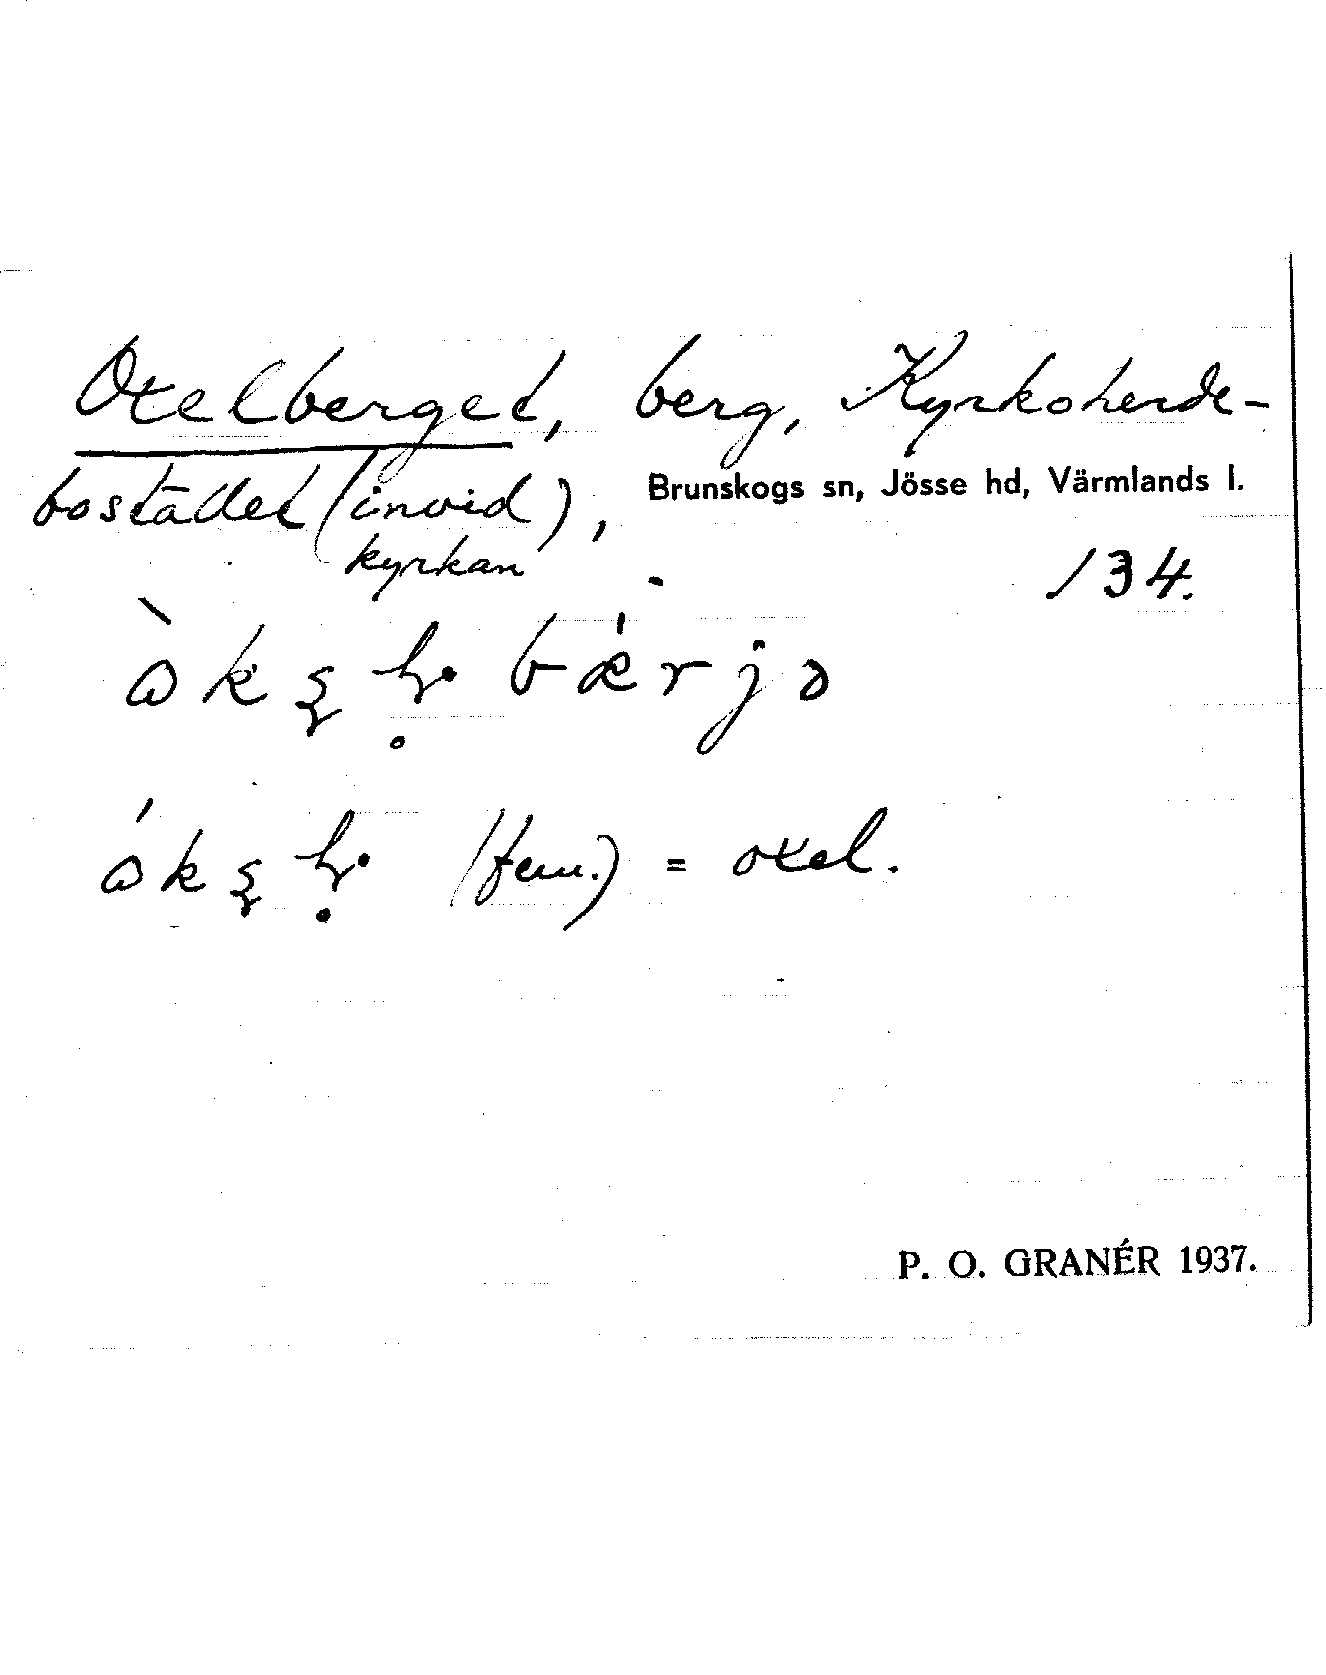 Oxelberget, berg, Kyrkoherde-
bostället (invid kyrkan),
Brunskogs sn, Jösse hd, Värmlands l.
134.
(fem.) = oxel.
P. O. GRANÉR 1937.